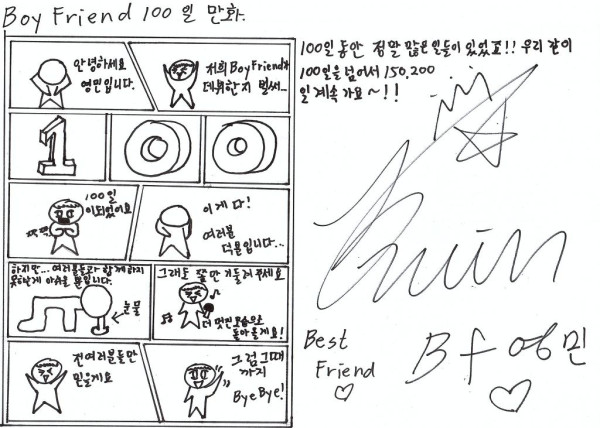 Boy Friend 100일 만화.
안녕하세요
영민입니다.
저희 BoyFriend가
데뷔한지 벌써...
1 0 0
100일
이되었어요
짝짝
이게 다!
여러분
덕분입니다...
하지만... 여러분들과 함께하지
못한게 아쉬울 뿐입니다.
눈물
그래도 쫌만 기둘려주세요
더 멋진 모습으로
돌아올게요!
전 여러분들만
믿을게요
그럼 그때
까지
ByeBye!
100일 동안 정말 많은 일들이 있었죠!! 우리 같이
100일을 넘어서 150, 200
일 계속 가요~!!
Best
Friend
Bf 영민